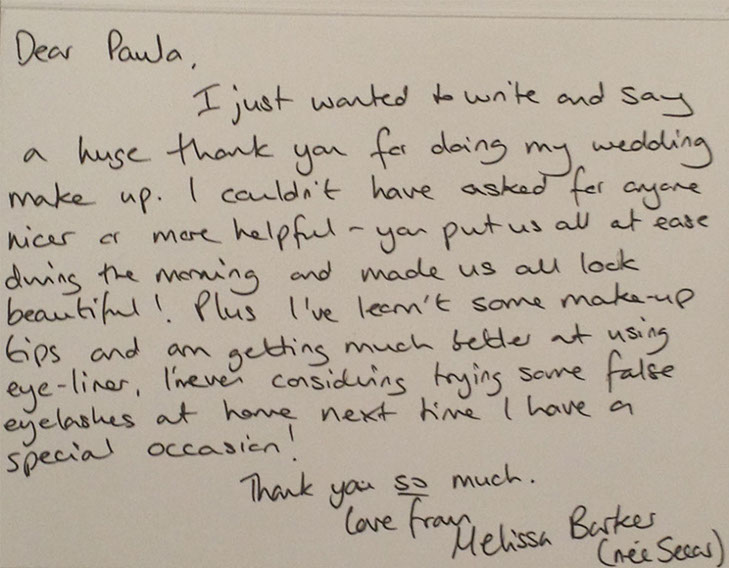 Dear Paula,
I just wanted to write and say
a huge thank you for doing my wedding
make up. I couldn't have asked for anyone
nicer or more helpful - you put us all at ease
during the morning and made us all look
beautiful! Plus I've learn't some make-up
tips and am getting much better at using
eye-liner, I'm even considering trying some false
eyelashes at home next time I have a
special occasion!
Thank you so much.
Love from
Melissa Barker
(née)